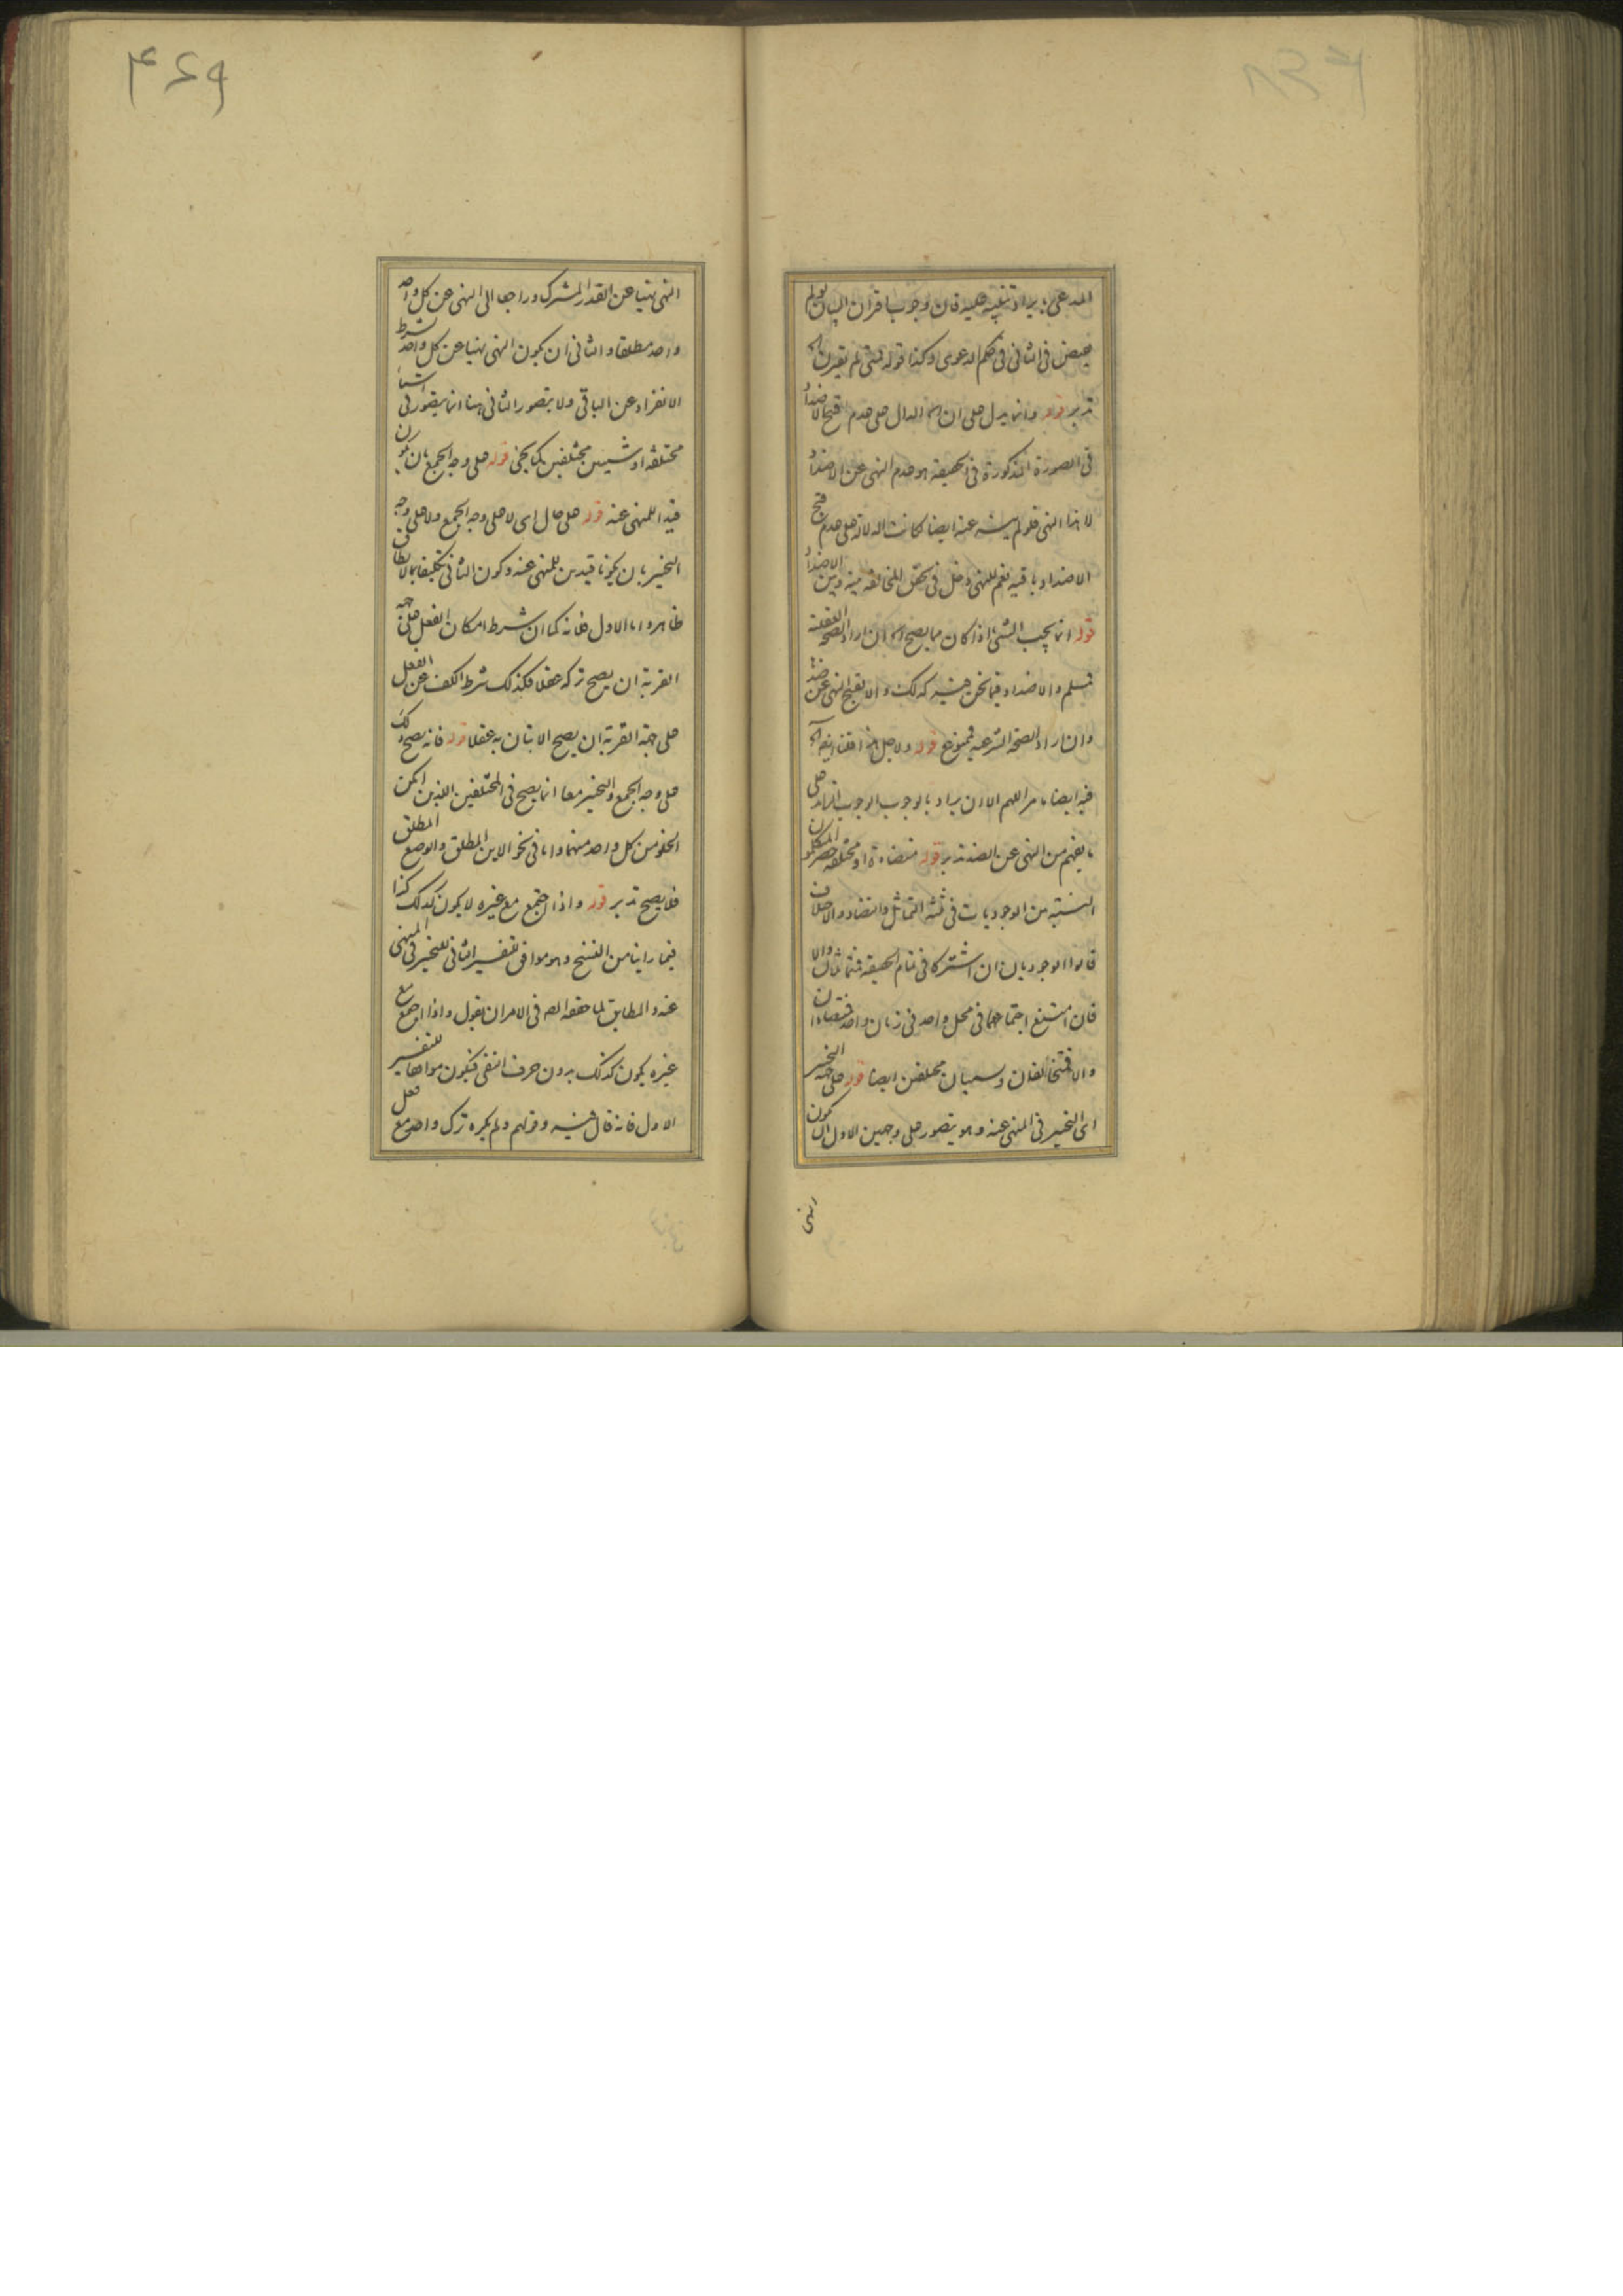 المدعى بايراد تنبيه عليه فان وجوب اقتران البيان لو لم
فى الثانى فى حكم الدعوى وكذا قوله فمتى لم يقترن اه
تدبر قوله وانما يدل على ان اه الدال على عدم قبح الاضداد
فى الصورة المذكورة فى الحقيقة هو عدم النهى عن الاضداد
لا هذا النهى فلو لم ينه عنه ايضا لكانت الدلالة على عدم قبح
الاضداد باقيه نعم للنهى دخل فى تحقق المخالفه بينه وبين الاضداد
قوله انما يجب الشىء اذا كان مما يصح اه ان اراد الصحة العقلية
فمسلم والاضداد فيما نحن فيه كذلك والا لقبح النهى عن ضده
وان اراد الصحة الشرعيه فممنوع قوله ولاجل هذا قلنا انه اه
فيه ايضا ما مر اللهم الا ان يراد بالوجوب الوجوب الزائد على
ما يفهم من النهى عن الضد تدبر قوله متضادة او مختلفه حصر المتكلمون
النسبة من الوجوديات فى ثلثه التماثل والتضاد والاختلاف
قالوا الوجوديان ان اشتركا فى تمام الحقيقة فمتماثلان والا
فان امتنع اجتماعهما فى محل واحد فى زمان واحد فمتضادان
والا فمتخالفان ويسميان مختلفين ايضا قوله على جهة التخيير
اى التخيير فى المنهى عنه وهو يتصور على وجهين الاول ان يكون
النهى نهيا عن القدر المشترك وراجعا الى النهى عن كل واحد
واحد مطلقا والثانى ان يكون النهى نهيا عن كل واحد بشرط
الانفراد عن الباقى ولا يتصور الثانى هنا انما يتصور فى اشياء
مختلفة او شيئين مختلفين كما يجئ قوله على وجه الجمع بان يكون
قيدا للمنهى عنه قوله على حال اى لا على وجه الجمع ولا على وجه
التخيير بان يكونا قيدين للمنهى عنه وكون الثانى تكليفا بما لا يطاق
ظاهر واما الاول فلانه كما ان شرط امكان الفعل على جهة
القربة ان يصح تركه عقلا فكذلك شرط الكف عن الفعل
على جهة القربة ان يصح الاتيان به عقلا قوله فانه يصح ذلك
على وجه الجمع والتخيير معا انما يصح فى المختلفين اللذين امكن
الخلو من كل واحد منهما واما فى نحو الاين المطلق والوضع المطلق
فلا يصح تدبر قوله واذا اجتمع مع غيره لا يكون كذلك كذا
فيما راينا من النسخ وهو موافق لتفسير الثانى للتخيير فى المنهى
عنه والمطابق لما حققه المص فى الامر ان يقول واذا اجتمع مع
غيره يكون كذلك بدون حرف النفى فيكون موافقا للتفسير
الاول فانه قال فيه وقولهم ولم يكره ترك واحد مع فعل